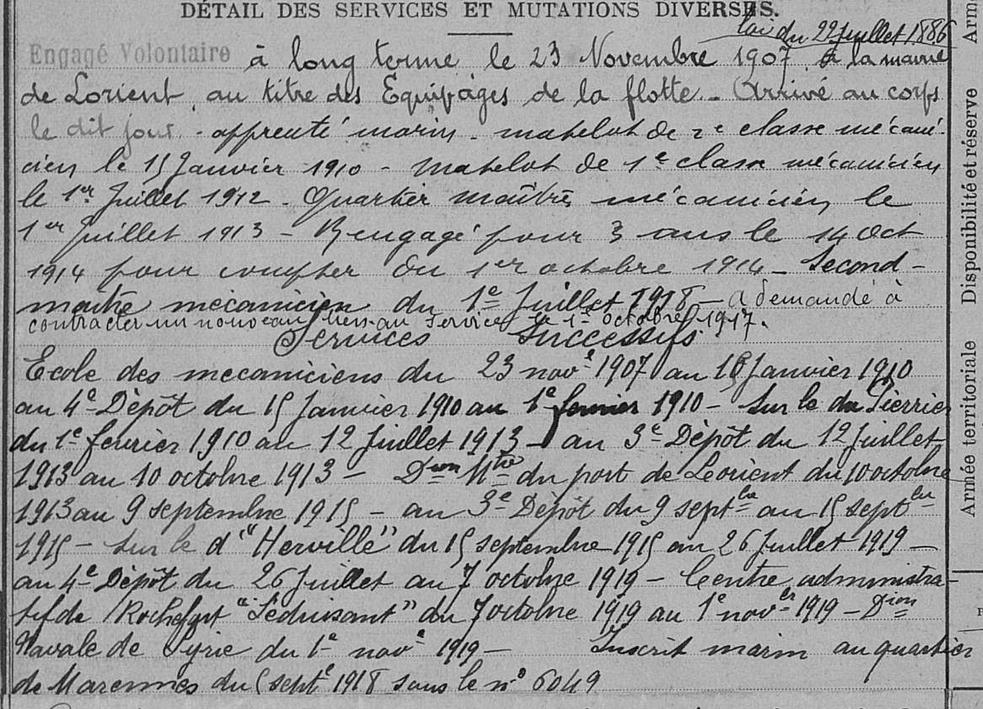 DÉTAIL DES SERVICES ET MUTATIONS DIVERSES.
Loi du 22 Juillet 1886
Engagé Volontaire à long terme le 23 Novembre 1907 à la mairie
de Lorient au titre des Equipages de la flotte - Arrivé au corps
le dit jour - apprenti marin - matelot de 2e classe mécani-
cien le 15 Janvier 1910 - Matelot de 1e classe mécanicien
le 1er Juillet 1912 - Quartier maître mécanicien le
1er Juillet 1913 - Rengagé pour 3 ans le 14 Oct
1914 pour compter du 1er octobre 1914 - Second-
maître mécanicien du 1e Juillet 1918 - a demandé à
contracter un nouveau lien au service le 1er octobre 1917.
Services Successifs
Ecole des mecaniciens du 23 nove 1907 au 15 Janvier 1910
au 4e Dépôt du 15 Janvier 1910 au 1e fevrier 1910 - Sur le du Pierrier
du 1e fevrier 1910 au 12 Juillet 1913 - au 3e Dépôt du 12 Juillet
1913 au 10 octobre 1913 - Don Mtre du port de Lorient du 10 octobre
1913 au 9 septembre 1915 - au 3e Dépôt du 9 septbre au 15 septbre
1915 - Sur le d'"Herville" du 15 septembre 1915 au 26 Juillet 1919 -
au 4e Dépôt du 26 Juillet au 7 octobre 1919 - Centre administra-
tif de Rochefort "Séduisant" du 7 octobre 1919 au 1e nover 1919 - Dion
Navale de Syrie du 1e nove 1919 - Inscrit marin au quartier
de Marennes du 5 septe 1918 sous le no 6049
Armée territoriale
Disponibilité et réserve